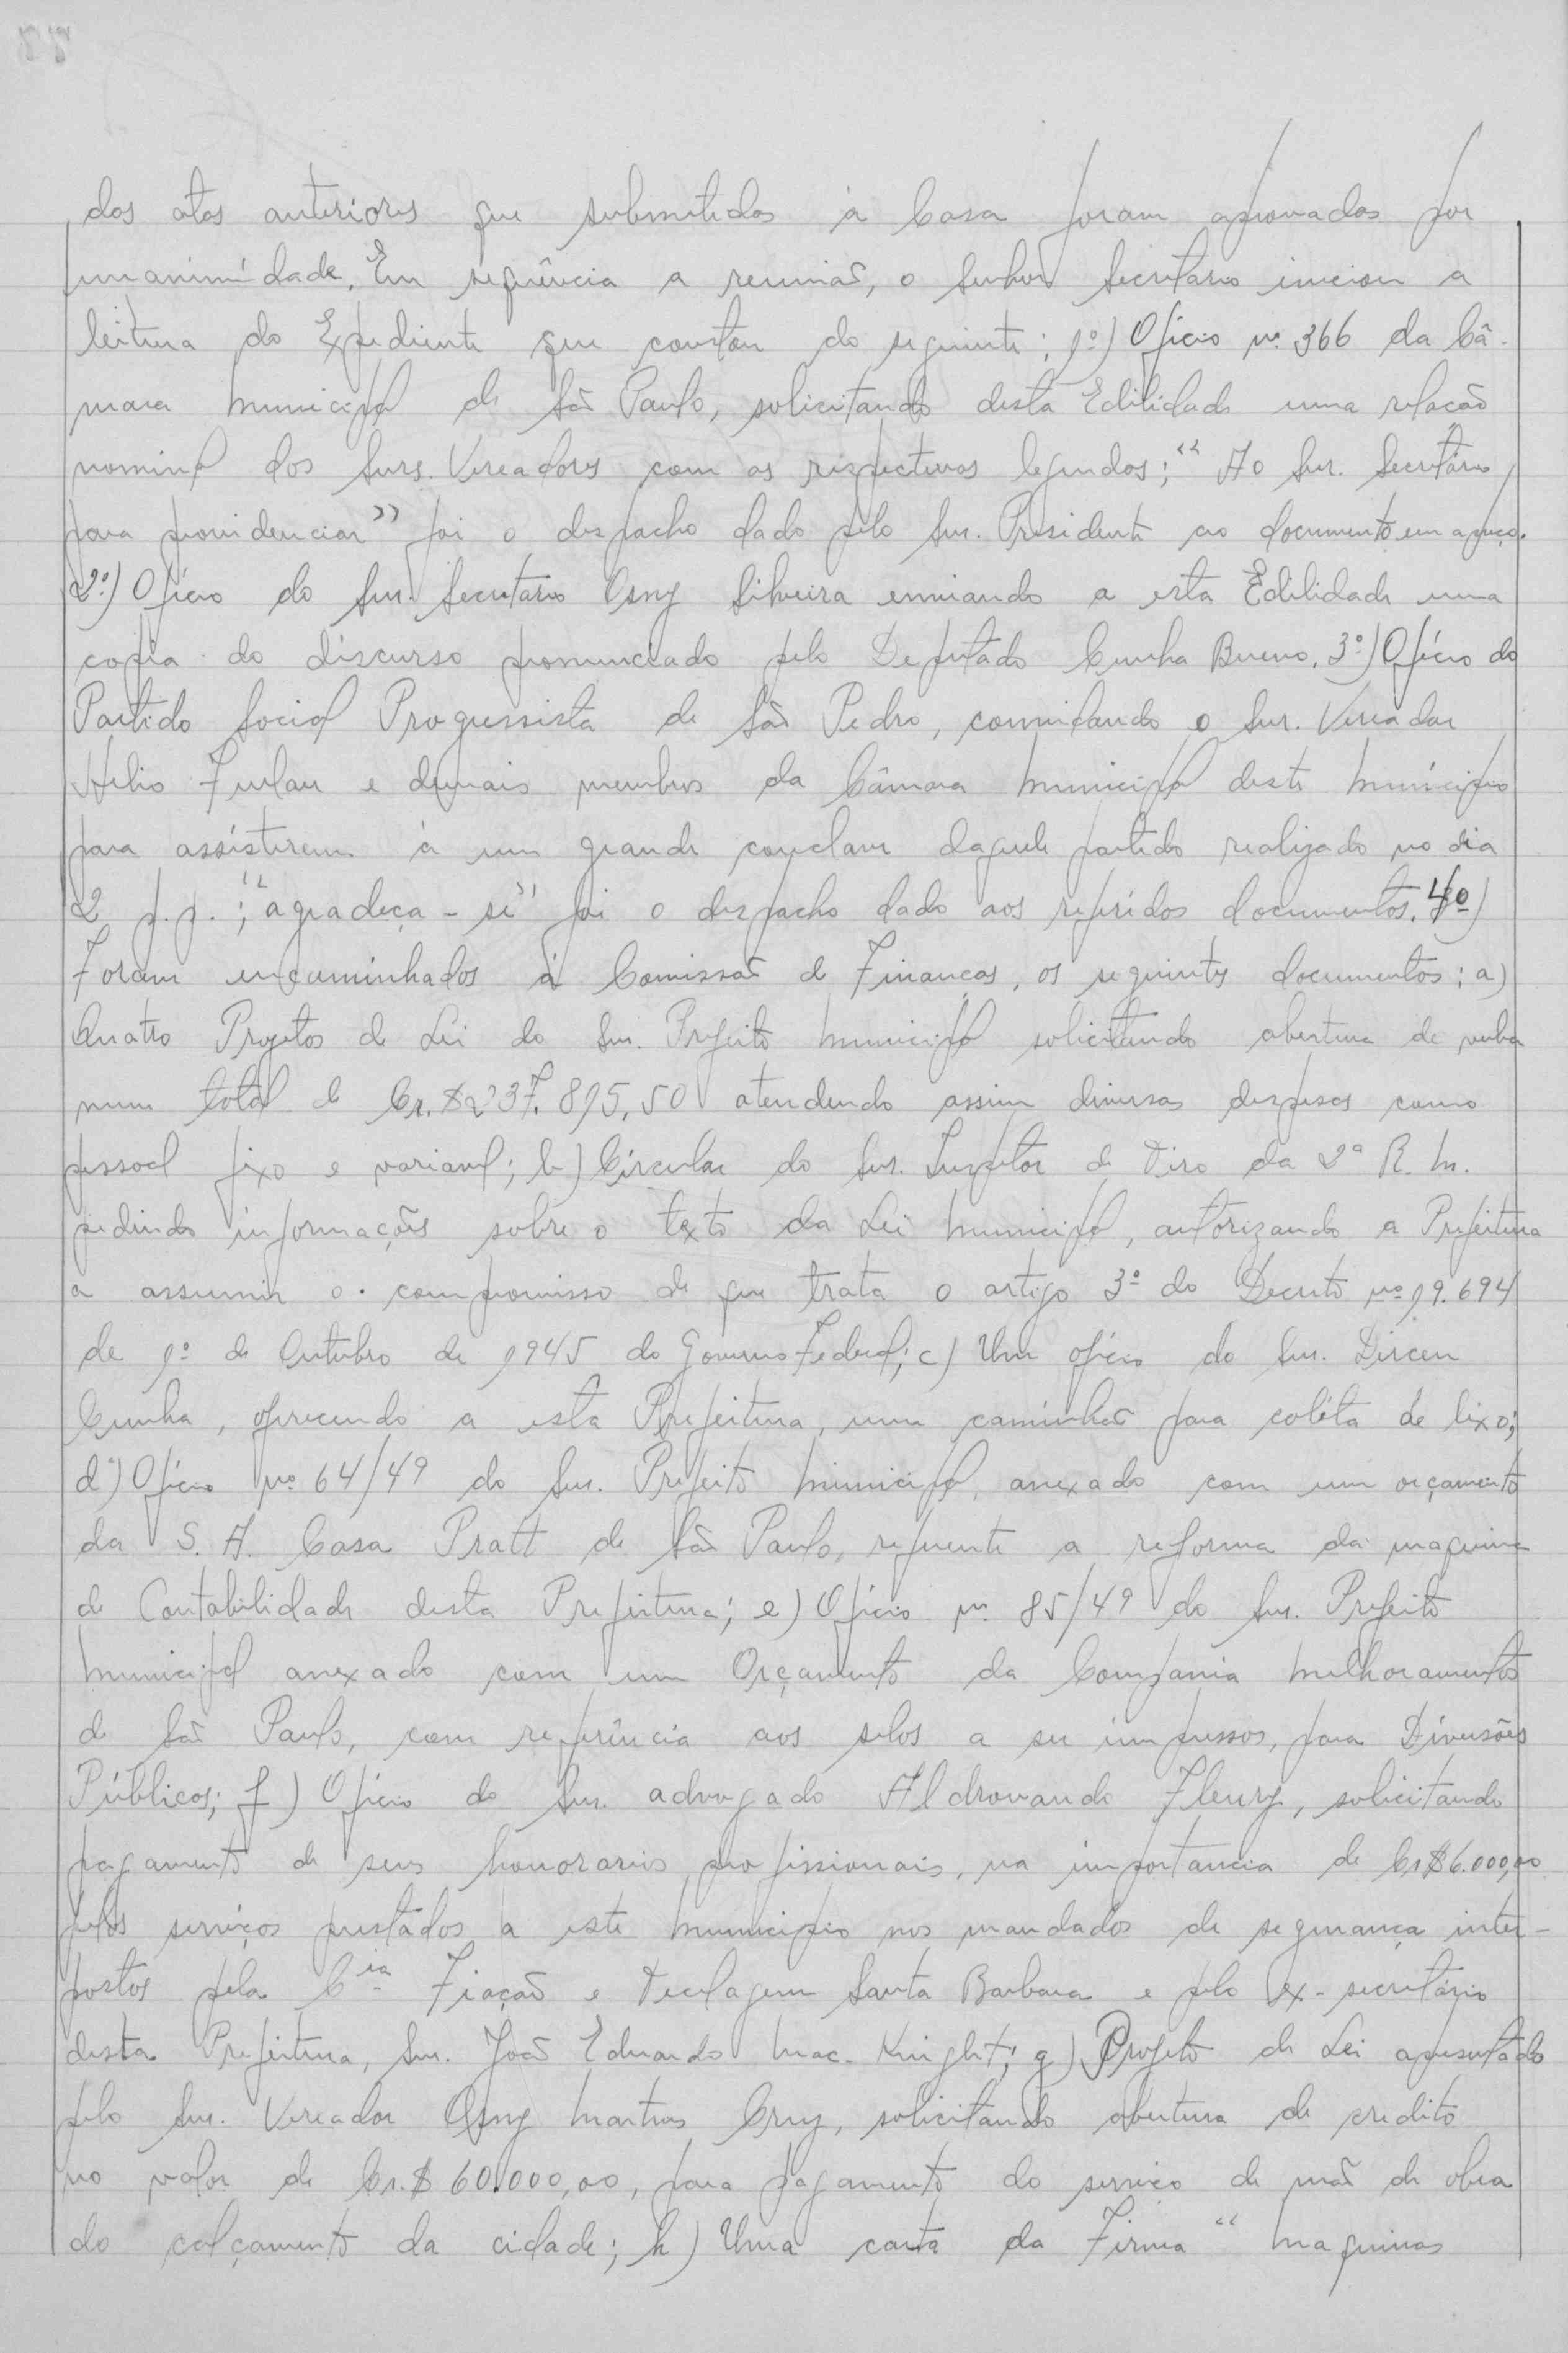 das atas anteriores que submetidas à Casa foram aprovadas por
unanimidade. Em seqüência a reunião, o Senhor Secretario iniciou a
leitura do Expediente que constou do seguinte: 1º) Oficio nº 366 da Câ-
mara Municipal de São Paulo, solicitando desta Edilidade uma relação
nominal dos Snrs. Vereadores com as respectivas legendas; "Ao Snr. Secretário
para providenciar" foi o despacho dado pelo Snr. Presidente ao documento em apreço.
2º) Ofício do Snr. Secretario Osny Silveira enviando a esta Edilidade uma
copia do discurso pronunciado pelo Deputado Cunha Bueno. 3º) Ofício do
Partido Social Progressista de São Pedro, convidando o Snr. Vereador
Helio Furlan e demais membros da Câmara Municipal deste Município
para assistirem à um grande conclave daquele partido realizado no dia
2 p.p.; "agradeça-se" foi o despacho dado aos referidos documentos. 4º)
Foram encaminhados à Comissão de Finanças, os seguintes documentos: a)
Quatro Projetos de Lei do Snr. Prefeito Municipal solicitando abertura de verba
num total de Cr.$237.895,50 atendendo assim diversas despesas como
pessoal fixo e variavel; b) Círcular do Snr. Inspetor de Tiro da 2ª R. M.
pedindo informações sobre o texto da Lei Municipal, autorizando a Prefeitura
a assumir o compromisso de que trata o artigo 3º do Decreto nº 19.694
de 1º de Outubro de 1945 do Governo Federal; c) Um oficio do Snr. Dirceu
Cunha, oferecendo a esta Prefeitura, um caminhão para coléta de lixo;
d) Ofício nº 64/49 do Snr. Prefeito Municipal, anexado com um orçamento
da S. A. Casa Pratt de São Paulo, referente a reforma da maquina
de Contabilidade desta Prefeitura; e) Ofício nº 85/49 do Snr. Prefeito
Municipal anexado com um Orçamento da Compania Melhoramentos
de São Paulo, com referência aos selos a ser impressos, para Diversões
Públicas; f) Ofício do Snr. advogado Aldrovando Fleury, solicitando
pagamento de seus honorarios profissionais, na importancia de Cr$6.000,00
pelos serviços prestados a este Municipio nos mandados de segurança inter-
postos pela Cia Fiação e Tecelagem Santa Barbara e pelo ex-secretário
desta Prefeitura, Snr. João Eduardo Mac-Knight; g) Projeto de Lei apresentado
pelo Snr. Vereador Osny Martins Cruz, solicitando abertura de credito
no valor de Cr.$ 60.000,00, para pagamento do serviço de mão de obra
do calçamento da cidade; h) Uma carta da Firma "Maquinas